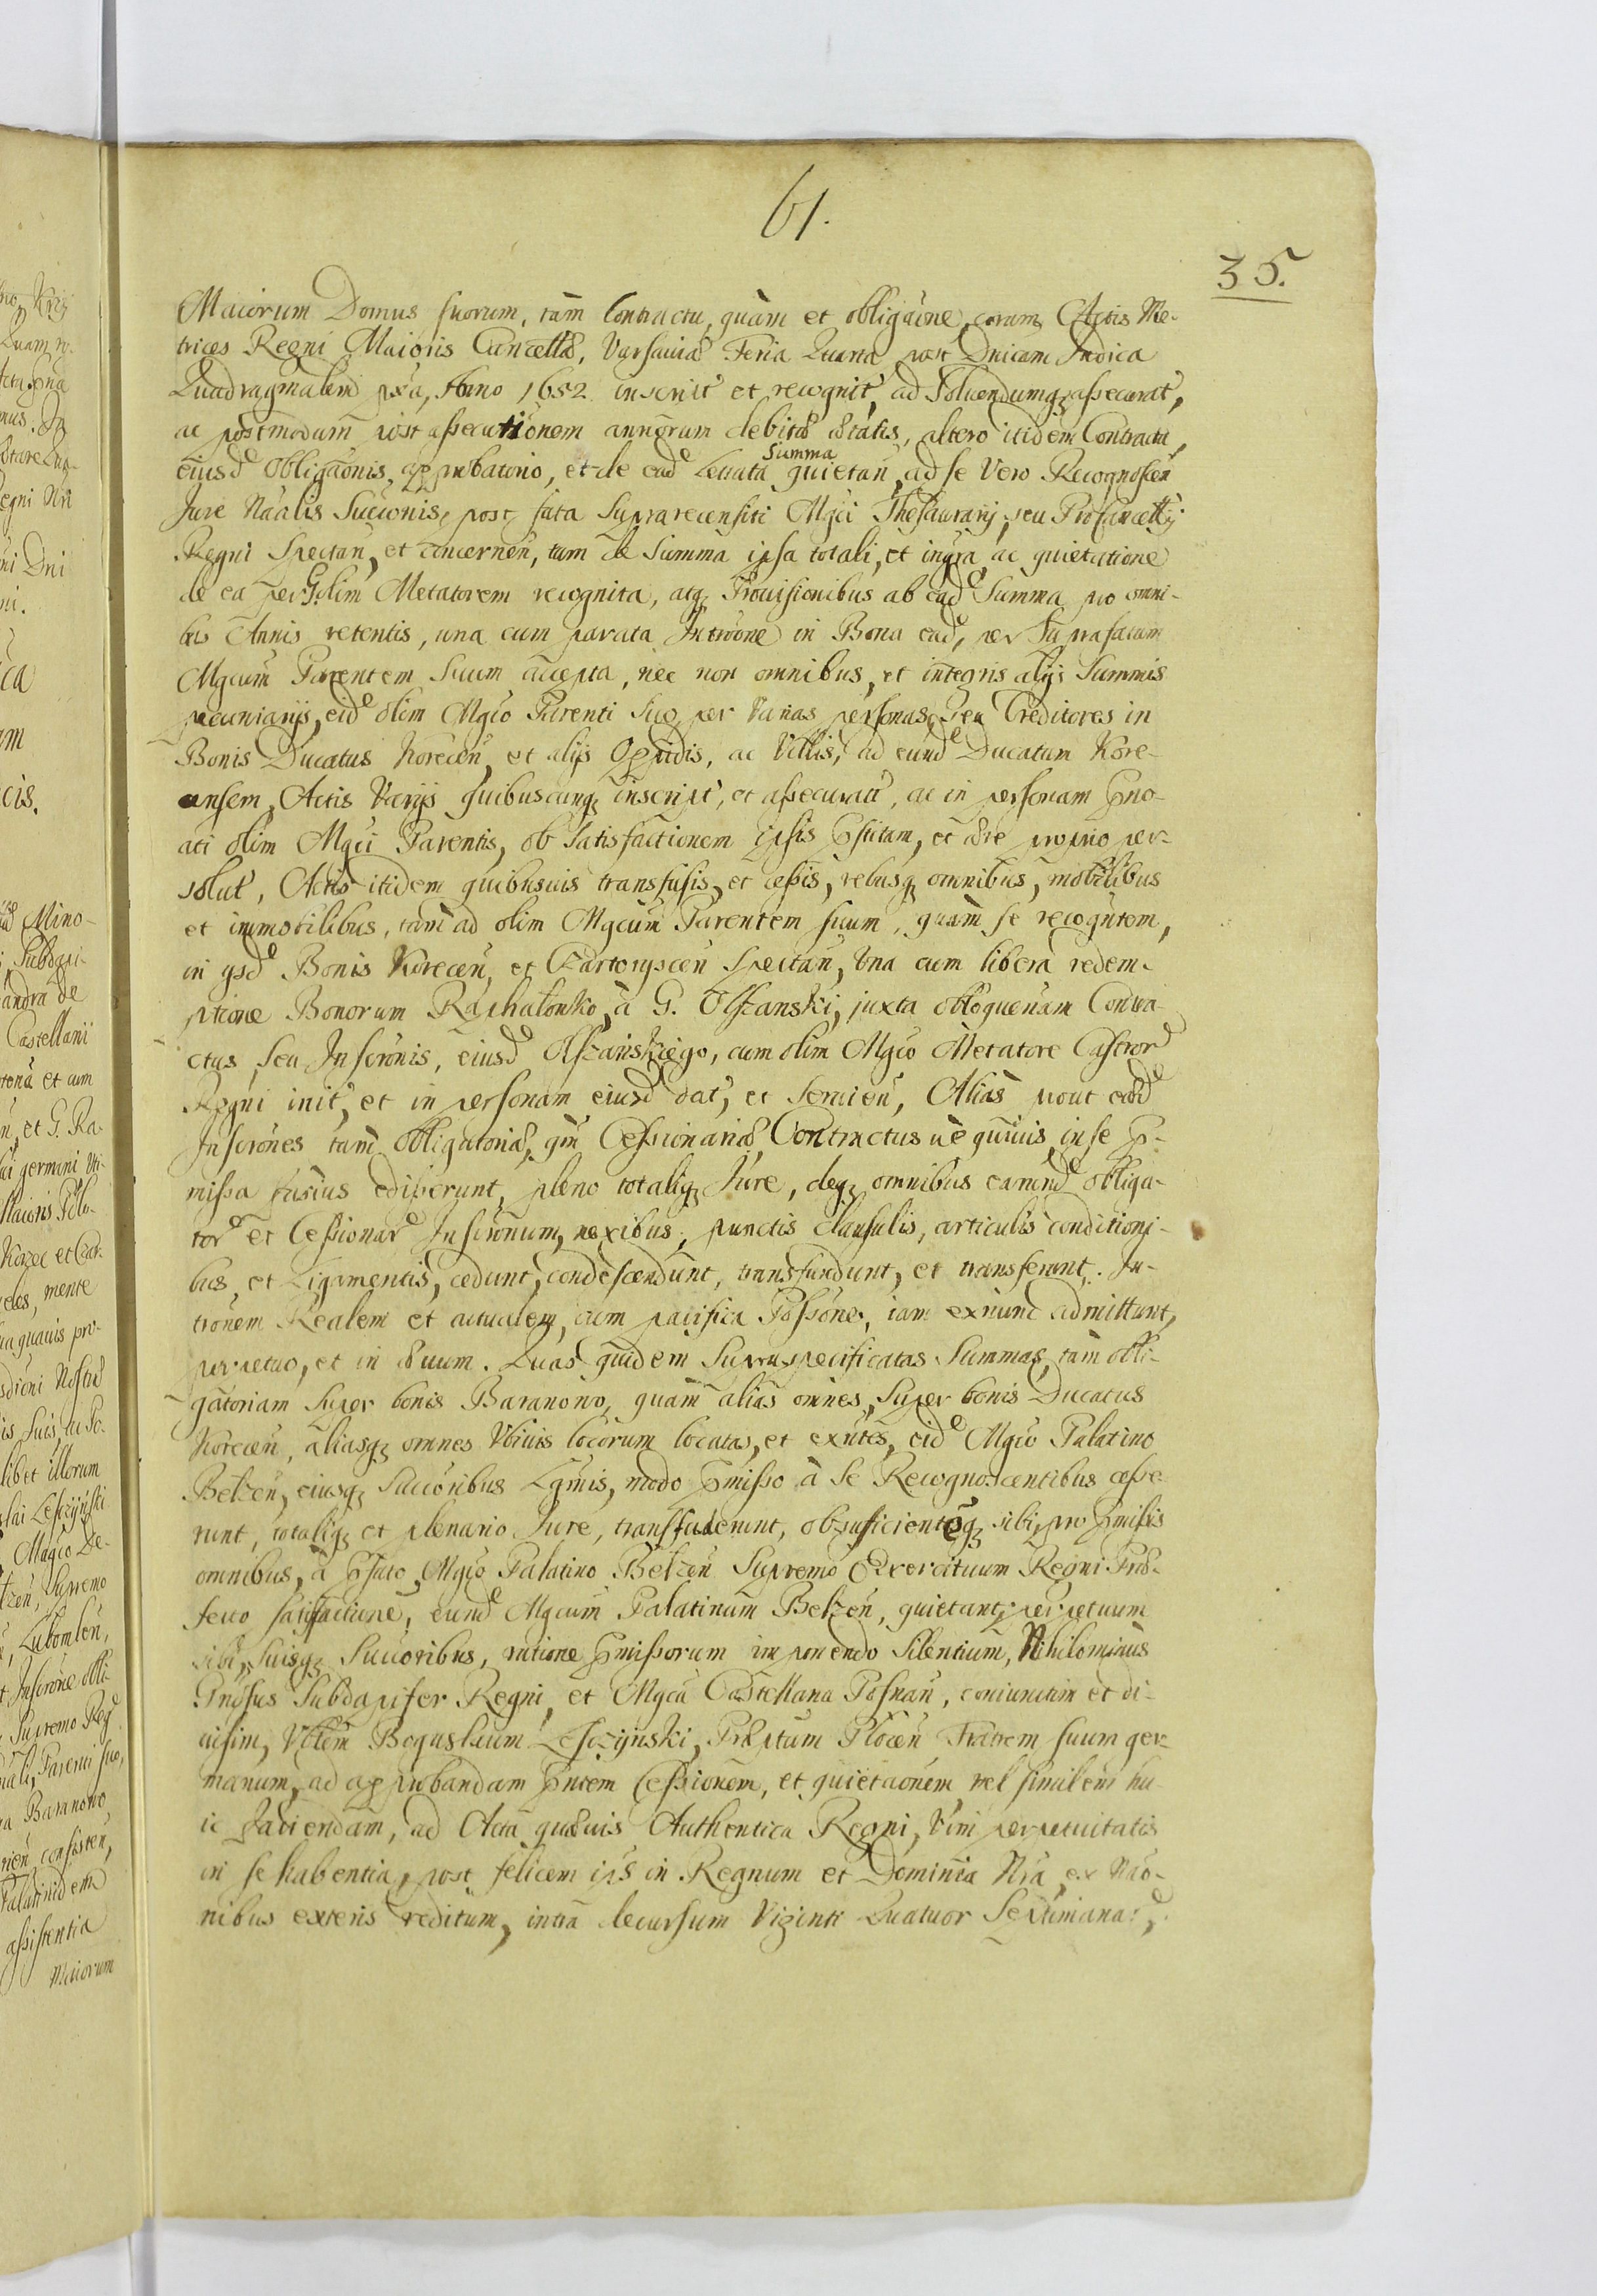 61.
35.
Maiorum Domus suorum, tam Contractu, quàm et obligãone, coram Actis Me-
trices Regni Maioris Cancellæ, Varsaviæ Feria Quarta post Dnicam Judica
Quadragmalem pxa, Anno 1652 inscript et recognit, ad solvendumq assecurat,
ac postmodum post assecutionem annorum debitæ ætatis, altero itidem Contractu,
eiusd obligãonis, approbatorio, et de ead Levata Summa quietan, ad se vero Recognoscen
Jure Naalis Sucionis, post fata Suprarecensiti Mgci Thesaurarij, seu Procancellij
Regni Spectan, et concernen, tam de Summa ipsa totali, et ingra, ac quietatione
de ea per Golim Metatorem recognita, atq Provisionibus ab ead Summa pro omni-
bus Annis retentis, una cum parata Introone in Bona ead, per Suprafatum
Mgcum Parentem Suum accepta, nec non omnibus, et integris alijs Summis
pecuniarijs, eid olim Mgco Parenti Suo, per Varias personas, seu Creditores in
Bonis Ducatus Korecen, et alijs Oppidis, ac Villis, ad eund Ducatum Kore-
censem, Actis Varijs quibuscunq inscript, et assecurat, ac in personam Pno-
ati olim Mgci Parentis, ob Satisfactionem ipsis Pstitam, et ære proprio per-
solut, Actis itidem quibusvis transfusis, et cessis, rebusq omnibus, mobilibus
et immobilibus, tam ad olim Mgcum Parentem suum, quàm se recogntem,
in ysd Bonis Korecen, et Czartoryscen Spectan, Una cum libera redem-
ptione Bonorum Raphalowko, à G. Olszanski, juxta obloquenam Contra-
ctus, seu Inscronis, eiusd Olszanskiego, cum olim Mgco Metatore Castror
Regni init, et in personam eiusd dat, et Servien, Aliàs prout ead
Inscrones tam Obligatoriæ, qm Cessionariæ, Contractus ue quiuis, in se P-
missa fusius edisserunt, pleno totaliq Jure, deq omnibus earund obliga-
tor et Cessionar Inscronum, nexibus, punctis clausulis, articulis conditioni-
bus, et Ligamentis, cedunt, condescendunt, transfundunt, et transferunt. In-
tronem Realem et actualem, cum pacifica Possone, iam exnunc admittunt,
perpetuo, et in ævum. Quas quidem Supraspecificatas Summas, tàm obli-
gatoriam super bonis Baranowo, quam alias omnes, Super bonis Ducatus
Korecen, aliasq omnes Ubiuis locorum locatas, et exntes, eid Mgco Palatino
Belzen, eiusq Succoribus Lgmis, modo Pmisso à Se Recognoscentibus cesse-
runt, totaliq et plenario Jure, transfuderunt, ob sufficientēq sibi, pro Pmissis
omnibus, à Psato Mgco Palatino Belzen Supremo Exercituum Regni Præ-
fecto satisfactione, eund Mgcum Palatinum Belzen, quietant, perpetuum
sibi, Suisq Succoribus, ratione Pmissorum imponendo Silentium, Nihilominus
Pnosus Subdapifer Regni, et Mgca Castellana Posnan, coniunctim et di-
uisim, Vblem Boguslaum Leszczynski, Præptum Plocen Fratrem suum ger-
manum, ad approbandam Pntem Cessionem, et quietaonem, vel similem hu-
ic faciendam, ad Acta quævis Authentica Regni, Vim perpetuitatis
in se habentia, post felicem ips in Regnum et Dominia Nra, ex Nao-
nibus exteris reditum, intra decursum Viginti Quatuor Septimanar,